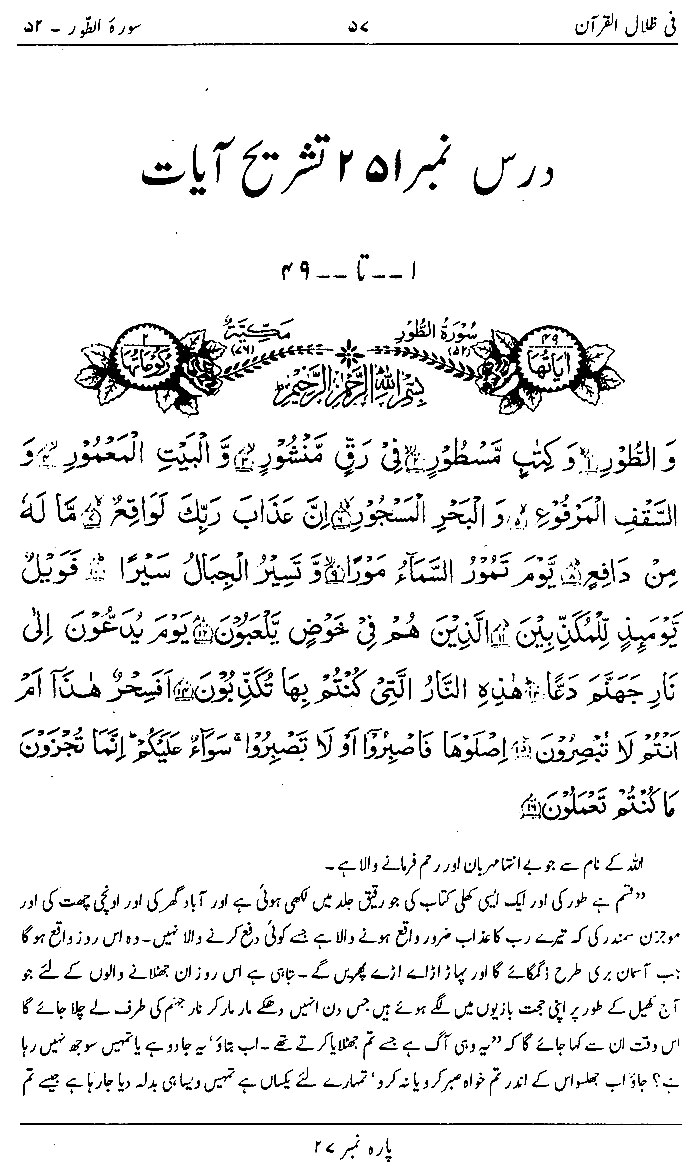 فی ظلال القرآن ۵۷ سورۃ الطّور - ۵۲
درس نمبر ۲۵۱ تشریح آیات
۱--تا--۴۹
اٰیَاتُهَا ۴۹ سُوْرَةُ الطُّوْرِ (۵۲) مَكِّيَّةٌ (۷۶) رُكُوْعَاتُهَا ۲
بِسْمِ اللّٰهِ الرَّحْمٰنِ الرَّحِيْمِ
وَ الطُّوْرِ ۱ وَ كِتٰبٍ مَّسْطُوْرٍ ۲ فِیْ رَقٍّ مَّنْشُوْرٍ ۳ وَّ الْبَیْتِ الْمَعْمُوْرِ ۴ وَ
السَّقْفِ الْمَرْفُوْعِ ۵ وَ الْبَحْرِ الْمَسْجُوْرِ ۶ اِنَّ عَذَابَ رَبِّكَ لَوَاقِعٌ ۷ مَّا لَهٗ
مِنْ دَافِعٍ ۸ یَّوْمَ تَمُوْرُ السَّمَآءُ مَوْرًا ۹ وَّ تَسِیْرُ الْجِبَالُ سَیْرًا ۱۰ فَوَیْلٌ
یَّوْمَىِٕذٍ لِّلْمُكَذِّبِیْنَ ۱۱ الَّذِیْنَ هُمْ فِیْ خَوْضٍ یَّلْعَبُوْنَ ۱۲ یَوْمَ یُدَعُّوْنَ اِلٰى
نَارِ جَهَنَّمَ دَعًّا ۱۳ هٰذِهِ النَّارُ الَّتِیْ كُنْتُمْ بِهَا تُكَذِّبُوْنَ ۱۴ اَفَسِحْرٌ هٰذَاۤ اَمْ
اَنْتُمْ لَا تُبْصِرُوْنَ ۱۵ اِصْلَوْهَا فَاصْبِرُوْۤا اَوْ لَا تَصْبِرُوْا ۚ سَوَآءٌ عَلَیْكُمْ ؕ اِنَّمَا تُجْزَوْنَ
مَا كُنْتُمْ تَعْمَلُوْنَ ۱۶
اللہ کے نام سے جو بے انتہا مہربان اور رحم فرمانے والا ہے۔
”قسم ہے طور کی اور ایک ایسی کھلی کتاب کی جو رقیق جلد میں لکھی ہوئی ہے اور آباد گھر کی اور اونچی چھت کی اور
موجزن سمندر کی کہ تیرے رب کا عذاب ضرور واقع ہونے والا ہے جسے کوئی دفع کرنے والا نہیں۔ وہ اس روز واقع ہو گا
جب آسمان بری طرح ڈگمگائے گا اور پہاڑ اڑے اڑے پھریں گے۔ تباہی ہے اس روز ان جھٹلانے والوں کے لئے جو
آج کھیل کے طور پر اپنی حجت بازیوں میں لگے ہوئے ہیں جس دن انہیں دھکے مار مار کر نار جہنم کی طرف لے چلا جائے گا
اس وقت ان سے کہا جائے گا کہ ”یہ وہی آگ ہے جسے تم جھٹلایا کرتے تھے۔ اب بتاؤ‘ یہ جادو ہے یا تمہیں سوجھ نہیں رہا
ہے؟ جاؤ اب جھلسو اس کے اندر تم خواہ صبر کرو یا نہ کرو‘ تمہارے لئے یکساں ہے تمہیں ویسا ہی بدلہ دیا جا رہا ہے جیسے تم
پارہ نمبر ۲۷